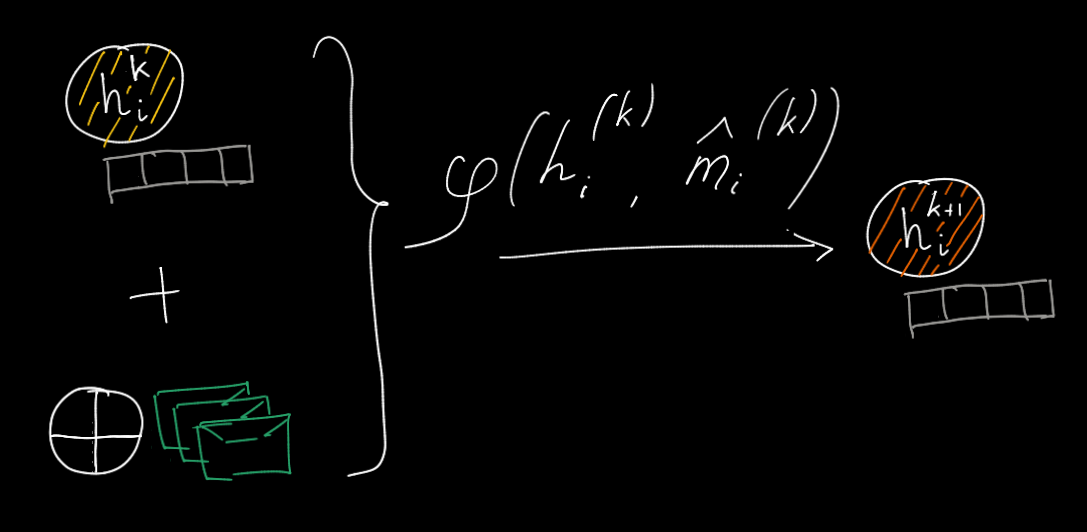 h_i^k
+
⊕
φ(h_i^(k), m̂_i^(k))
h_i^{k+1}